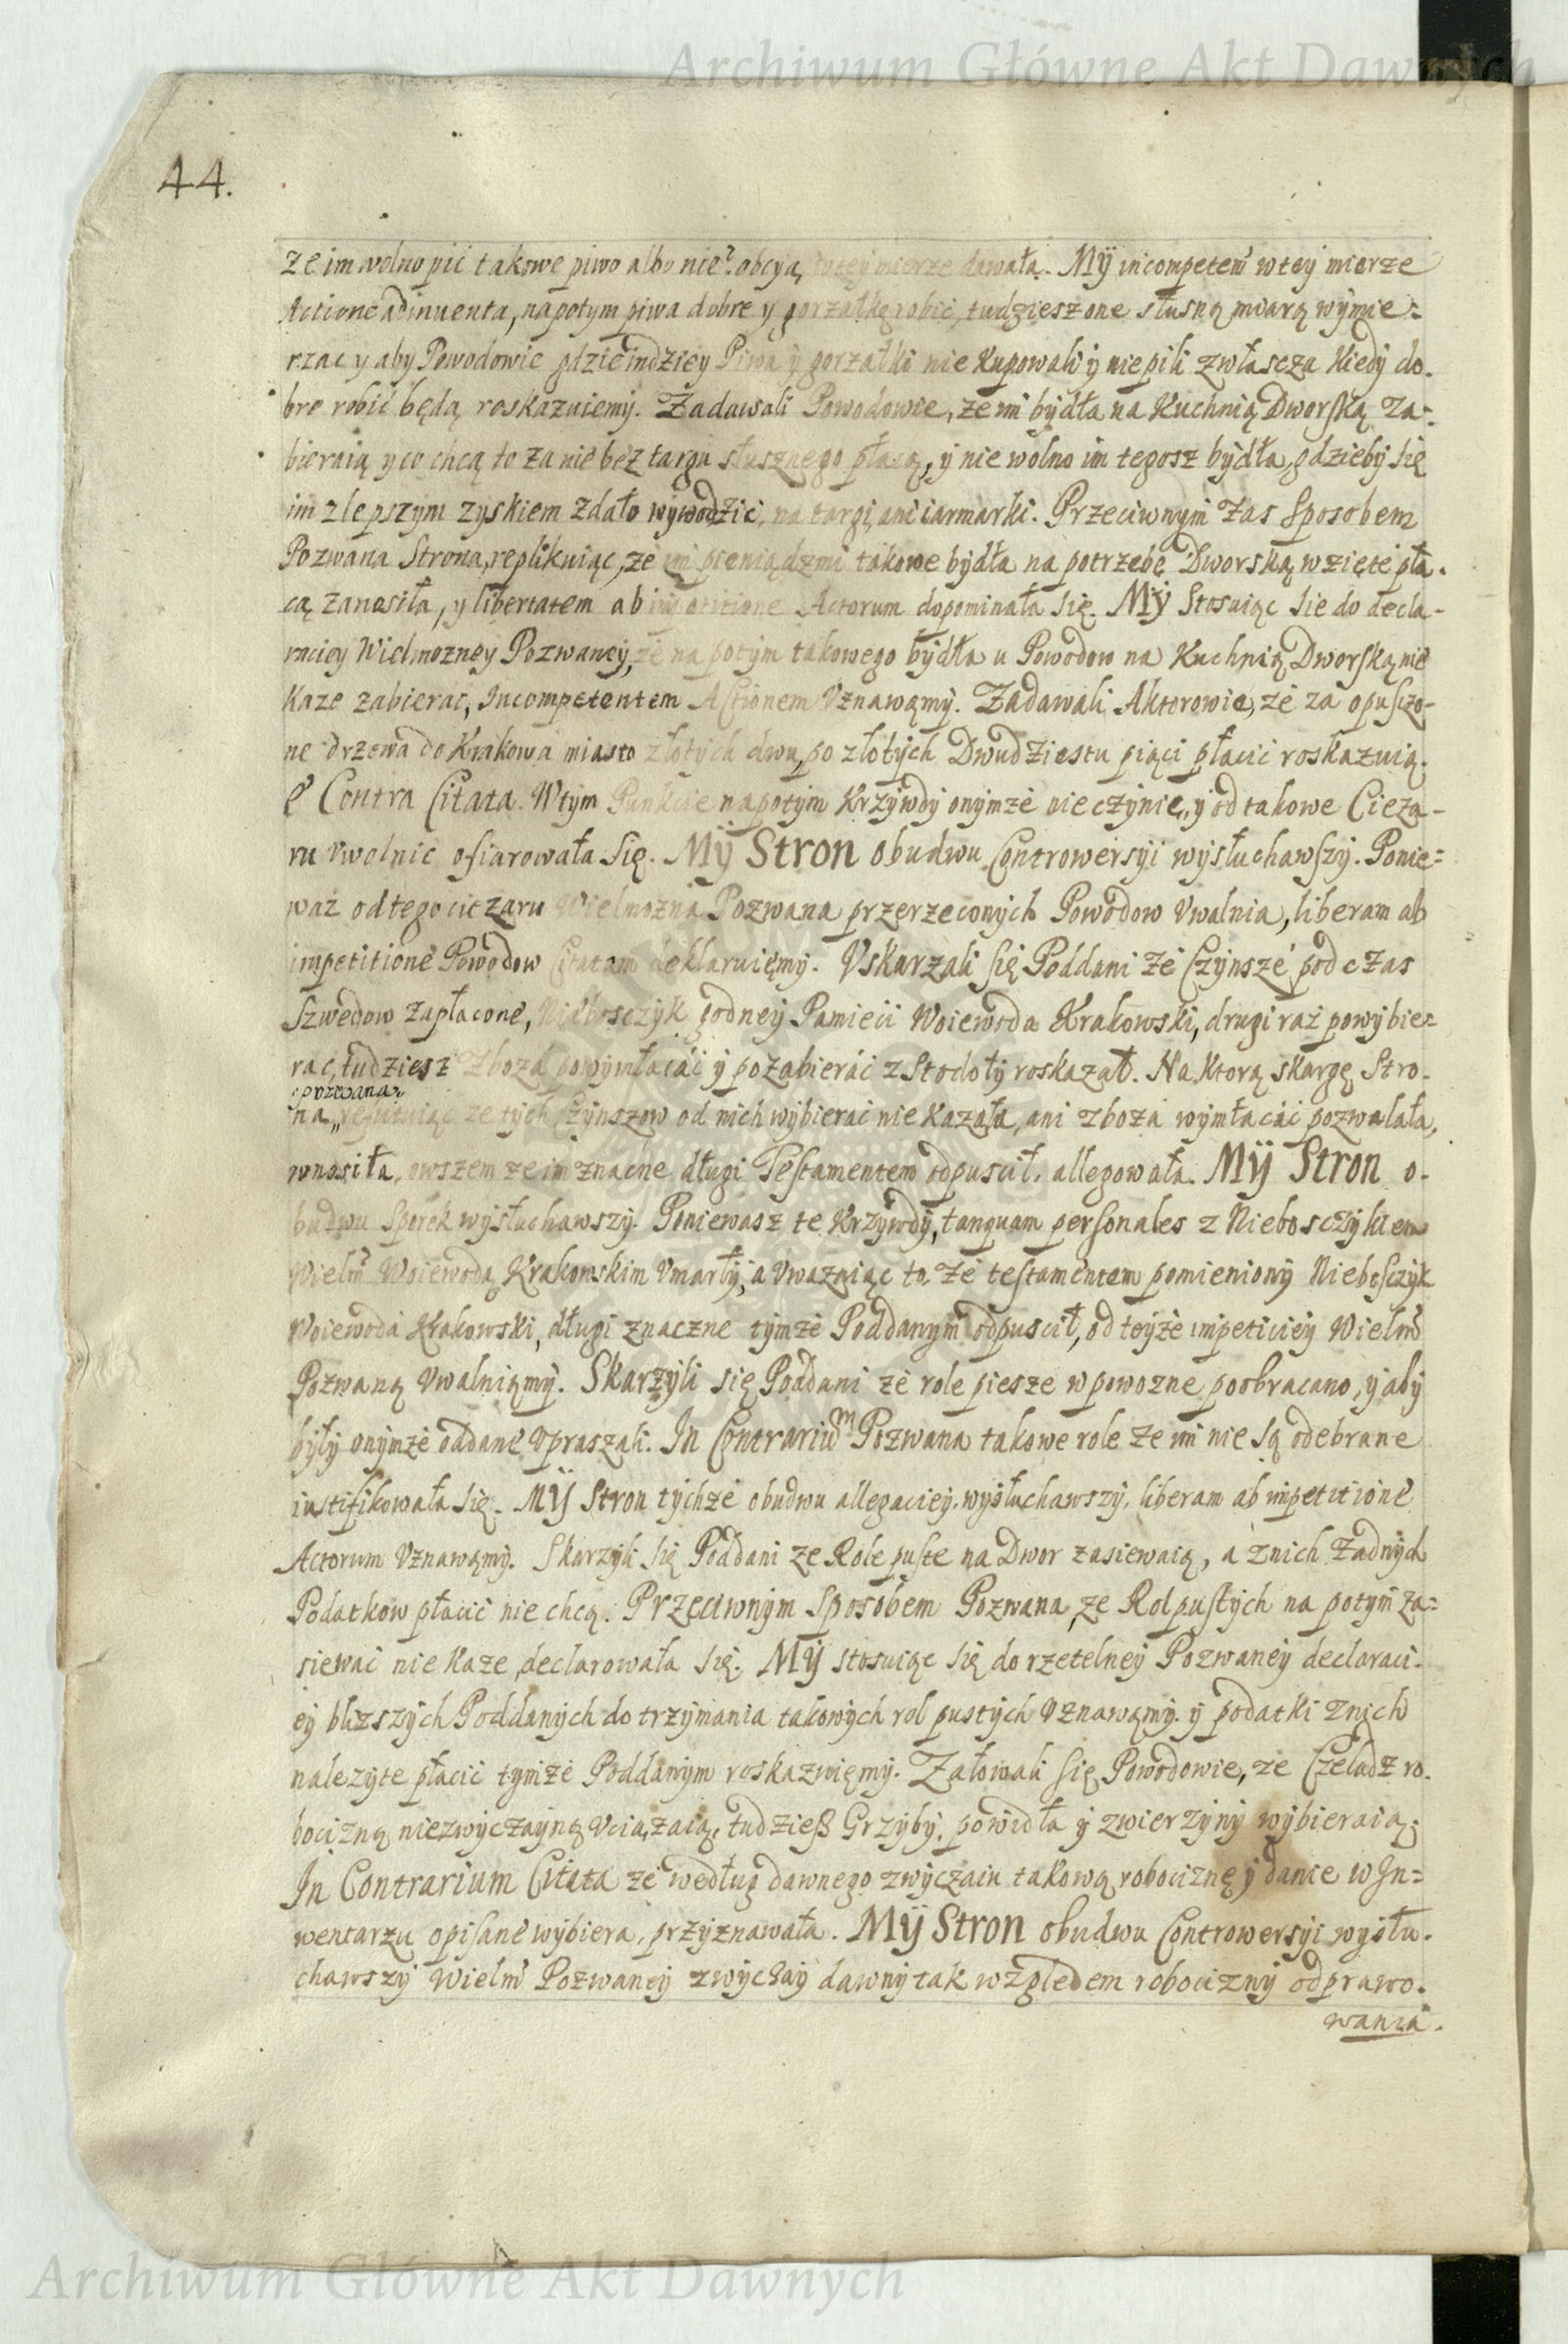 Archiwum Główne Akt Dawnych
44.
że im wolno pić takowe piwo albo nie? obcyą, w tey mierze dawała. Mÿ incompetem̃ w tey mierze
Actione adinuenta, napotym piwa dobre y gorzałkę robić, tudziesz one słusną miarą wymie=
rzac y aby Powodowie gdzieindziey Piwa y gorzałki nie kupowali y nie pili zwłascza kiedy do.
bre robić będą roskazuiemy. Żadawali Powodowie, że im bydła na Kuchnią Dworską za=
bieraią y co chcą to za nie bez targu słusznego płacą, y nie wolno im tegosz bydła, gdzieby się
im z lepszym zyskiem zdało wywodzić, na targi, ani iarmarki. Przeciwnym zas Sposobem
Pozwana Strona, replikuiąc, że im pieniądzmi takowe bydła na potrzebę Dworską wzięte pła.
cą zanosiła, y libertatem ab impetitione Actorum dopominała się. Mÿ Stosuiąc sie do decla-
raciey Wielmozney Pozwaney, że na potym takowego bydła u Powodow na Kuchnią Dworską nie
każe zabierać, Incompetentem Actionem Vznawamy. Zadawali Aktorowie, że za opuszczo-
ne drzewa do Krakowa miasto złotych dwu, po złotych Dwudziestu piąci płacić roskazuią.
E Contra Citata. W tym Punkcie napotym Krzywdy onymże nie czynić, y od takowe Cięza-
ru vwolnić ofiarowała się. Mÿ Stron obudwu Controwersyi wysłuchawszy. Ponie=
waż od tego ciężaru Wielmożna Pozwana przerzeconych Powodow Vwalnia, liberam ab
impetitione Powodow Citatam deklaruięmy. Vskarzali się Poddani że Czynsze pod czas
Szwedow zapłacone, Niebosczyk godney Pamięci Woiewoda Krakowski, drugi raz powybie=
rac, tudziesz zboża powymłacáć y pozabieráć z Stodoły roskazał. Na ktorą skargę Stro-
pozwana
na, refutuiąc że tych Czynszow od nich wybierać nie kazała, ani zboża wymłacáć pozwalała,
wnosiła, owszem że im znaczne długi Testamentem odpuscił, allegowała. Mÿ Stron o-
budwu Sporek wysłuchawszy. Poniewasz te Krzywdy, tanquam personales z Niebosczykiem
Wielm̃ Woiewodą Krakowskim Vmarły, a vważaiąc to, że testamentem pomieniony Niebosczyk
Woiewoda Krakowski, długi znaczne tymże Poddanym odpuscił, od teyże impeticiey Wielm̃
Pozwaną Vwalniamy. Skarzyli się Poddani że role piesze w powozne poobracano, y aby
były onymże oddane vpraszali. In Contrarium Pozwana takowe role że im nie są odebrane
iustifikowała się. Mÿ Stron tychże obudwu allegaciey. wysłuchawszy, liberam ab impetitione
Actorum Vznawamy. Skarzyli się Poddani że Role puste na Dwor zasiewaią, a z nich żadnych
Podatkow płacić nie chcą. Przeciwnym Sposobem Pozwana, że Rol pustych na potym za=
siewać nie każe, declarowała się. Mÿ stosuiąc się do rzetelney Pozwaney declaraci-
ey bliższych Poddanych do trzymania takowych rol pustych Vznawamy. y podatki z nich
należyte płacić tymże Poddanym roskazuięmy. Załowali się Powodowie, że Czeladź ro.
bocizną niezwyczayną Vciążaią, tudziesz Grzyby, powidła y zwierzyny wybieraią;
In Contrarium Citata że według dawnego zwyczaiu takową robociznę y danie w In=
wentarzu opisane wybiera, przyznawała. Mÿ Stron obudwu Controwersyi wysłu.
chawszy Wielm̃ Pozwaney zwyczay dawny tak względem robocizny odprawo.
wania.
Archiwum Główne Akt Dawnych